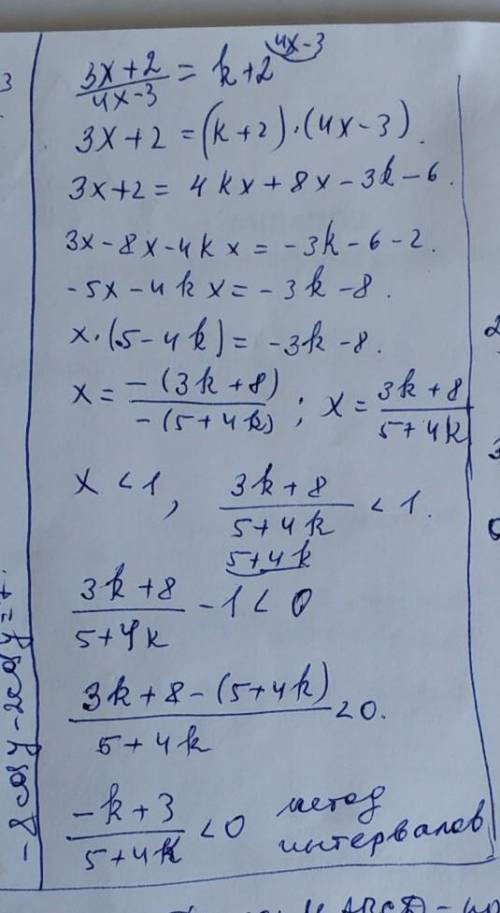 4x-3
(3x+2)/(4x-3) = k+2
3x+2 = (k+2)·(4x-3).
3x+2 = 4kx+8x-3k-6.
3x-8x-4kx = -3k-6-2.
-5x-4kx = -3k-8.
x·(5-4k) = -3k-8.
x = -(3k+8)/-(5+4k) ; x = (3k+8)/(5+4k)
x < 1, (3k+8)/(5+4k) < 1.
5+4k
(3k+8)/(5+4k) - 1 < 0
(3k+8-(5+4k))/(5+4k) < 0.
(-k+3)/(5+4k) < 0 метод
интервалов